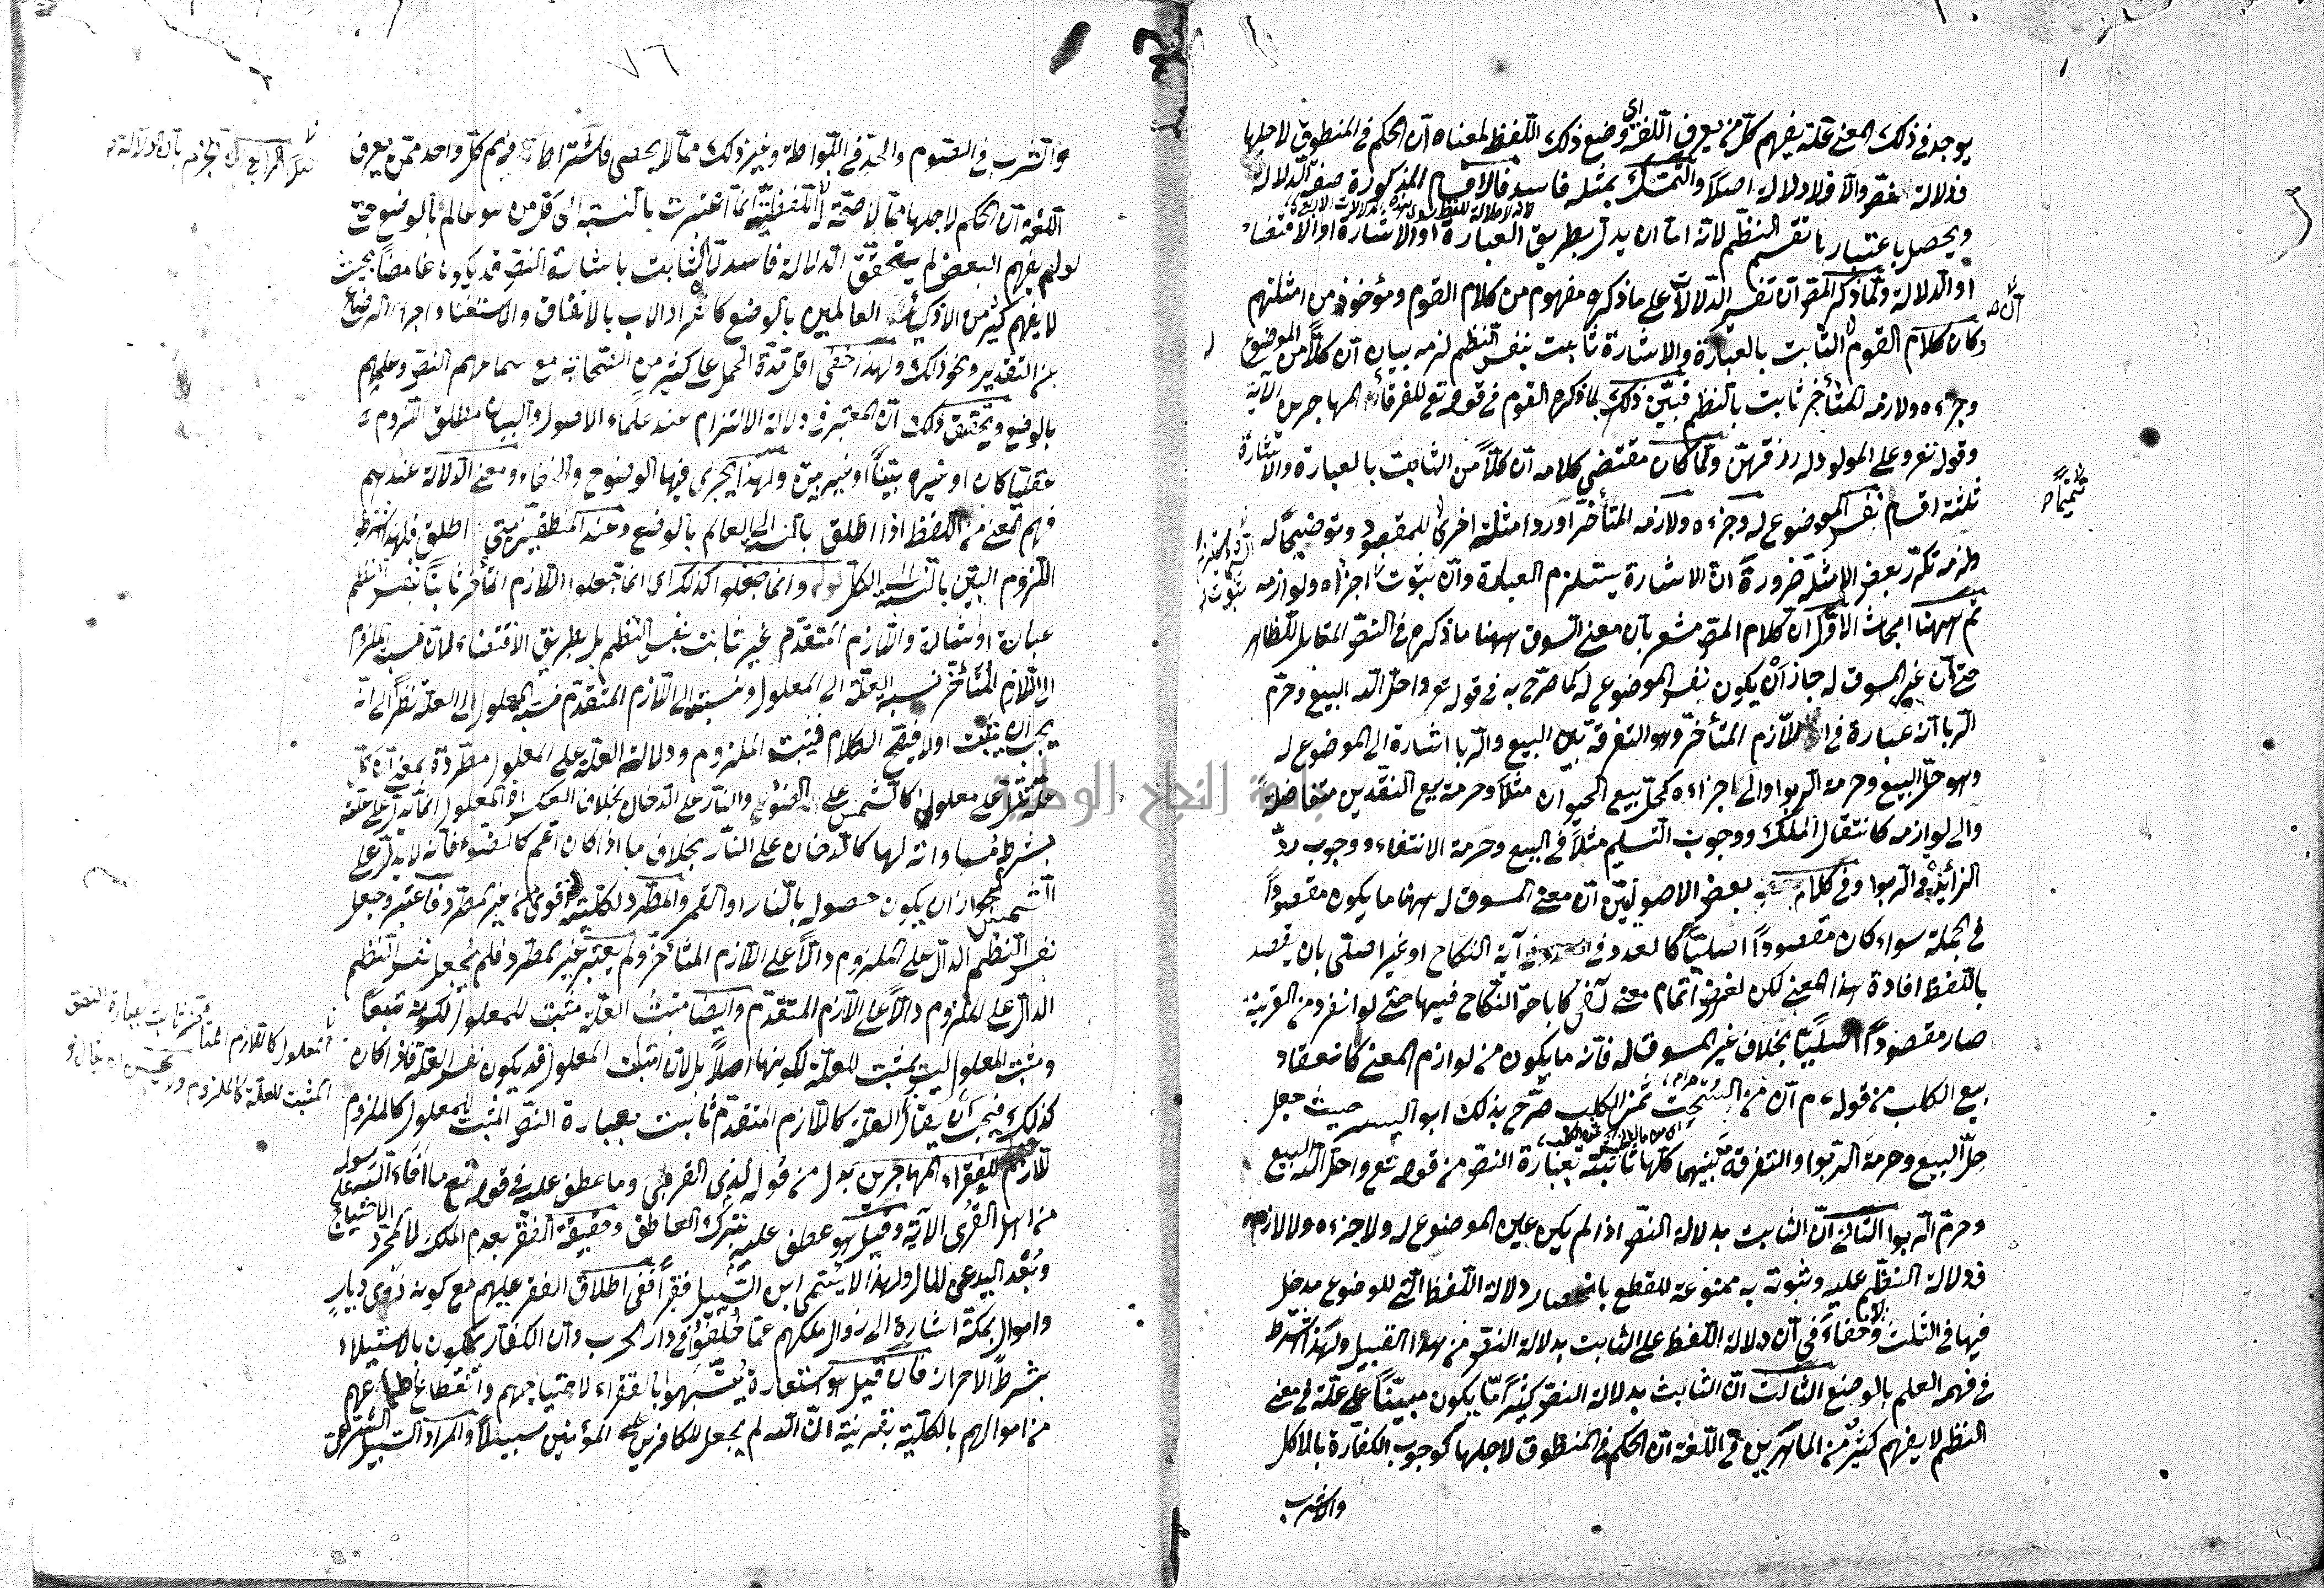 يوجد في ذلك المعنى علة يفهم كل من يعرف اللغة اي وضع ذلك اللفظ لمعناه ان الحكم في المنطوق لاجلها
فدلالة نص والا فلا دلالة اصلا والتمسك بمثله فاسد فالاقسام المذكورة صفة الدلالة
ويحصل باعتبارها تقسيم النظم لانه اما ان يدل بطريق العبارة او الاشارة او الاقتضاء
او الدلالة ولما ذكر المص ان تفسير الدلالات على ما ذكره مفهوم من كلام القوم ومأخوذ من امثلتهم
وكان كلام القوم ان الثابت بالعبارة والاشارة ثابت بنفس النظم لزمه بيان ان كلا من الموضوع له
وجزءه ولازمه المتأخر ثابت بالنظم فبين ذلك بما ذكره القوم في قوله تع للفقراء المهاجرين الآية
وقوله تع وعلى المولود له رزقهن ولما كان مقتضى كلامه ان كلا من الثابت بالعبارة والاشارة
ثلثة اقسام نفس الموضوع له وجزءه ولازمه المتأخر اورد امثلة اخرى للمقصود وتوضيحا له
ولزمه تكرر بعض الامثلة ضرورة ان الاشارة يستلزم العبارة وان بثبوت اجزاءه ولوازمه
ثم ههنا ابحاث الاول ان كلام المص مشعر بان معنى السوق ههنا ما ذكره في النص المقابل للظاهر
حتى ان غير المسوق له جاز ان يكون نفس الموضوع له كما صرح به في قوله تع واحل الله البيع وحرم
الربا انه عبارة في اللازم المتأخر وهو التفرقة بين البيع والربا اشارة الى الموضوع له
وهو حل البيع وحرمة الربوا والى اجزاءه كحل بيع الحيوان مثلا وحرمة بيع النقدين متفاضلة
والى لوازمه كانتقال الملك ووجوب التسليم مثلا في البيع وحرمة الانتفاء ووجوب رد
الزائد في الربوا وفي كلام بعض الاصوليين ان معنى المسوق له ههنا ما يكون مقصودا
في الجملة سواء كان مقصودا اصليا كالعدد في آية النكاح او غير اصلي بان يقصد
باللفظ افادة هذا المعنى لكن لغرض اتمام معنى آخر كاباحة النكاح فيها حتى لو انفرد من القرينة
صار مقصودا اصليا بخلاف غير المسوق له فانه ما يكون من لوازم المعنى كانعقاد
بيع الكلب من قوله ء م ان من السحت ثمن الكلب صرح بذلك ابو اليسر حيث جعل
حل البيع وحرمة الربوا والتفرقة بينهما كلها ثابتة بعبارة النص من قوله تع واحل الله البيع
وحرم الربوا الثاني ان الثابت بدلالة النص اذا لم يكن عين الموضوع له ولا جزءه ولا لازمه
فدلالة النظم عليه وثبوته به ممنوعة للقطع بانحصار دلالة اللفظ التي للوضوع مدخل
فيها في الثلث ولا خفاء في ان دلالة اللفظ على الثابت بدلالة النص من هذا القبيل ولهذا اشترط
في فهمه العلم بالوضع الثالث ان الثابت بدلالة النص كثيرا ما يكون مبنيا على علة في معنى
النظم لا يفهم كثير من الماهرين في اللغة ان الحكم في المنطوق لاجلها كوجوب الكفارة بالاكل
والشرب
٧٦
والشرب في الصوم والحد في اللواطة وغير ذلك مما لا يحصى فاشتراط فهم كل واحد ممن يعرف
اللغة ان الحكم لاجلها مما لا صحة له اللفظية انما اعتبرت بالنسبة الى كل من هو عالم بالوضع حتى
لو لم يفهم البعض لم يتحقق الدلالة فاسد لان الثابت باشارة النص قد يكون غامضا بحيث
لا يفهم كثير من الاذكياء العالمين بالوضع كانفراد الاب بالانفاق والاستغناء اجرة الرضاع
عن التقدير ونحو ذلك ولهذا خفى اقل مدة الحمل على كثير من الصحابة مع سماعهم النص وعلمهم
بالوضع وتحقيق ذلك ان المعتبر في دلالة الالتزام عند علماء الاصول والبيان مطلق اللزوم
عقليا كان او غيره بينا او غير بين ولهذا يجري فيها الوضوح والخفاء ومعنى الدلالة عندهم
فهم المعنى من اللفظ اذا اطلق بالنسبة الى العالم بالوضع وعند المنطقيين متى اطلق فلهذا اشترطوا
اللزوم البين بالنسبة الى الكل قوله وانما جعلوا كذلك اي انما جعلوا اللازم المتأخر ثابتا بنفس النظم
عبارة او اشارة واللازم المتقدم غير ثابت بنفس النظم بل بطريق الاقتضاء لان نسبة الملزوم
الى اللازم المتأخر نسبة العلة الى المعلول ونسبته الى اللازم المتقدم نسبة المعلول الى العلة نظرا الى انه
يجب ان يثبت اولا فيصح الكلام فيثبت الملزوم ودلالة العلة على المعلول مطردة بمعنى ان كل
علة تدل على معلولها كالشمس على الضوء والنار على الدخان بخلاف العكس اذ المعلول انما يدل على علته
بشرط مساواته لها كالدخان على النار بخلاف ما اذا كان اعم كالضوء فانه لا يدل على
الشمس لجواز ان يكون حصوله بالنار او القمر والمطرد لكليته اقوى من غير المطرد فاعتبر وجعل
نفس النظم الدال على الملزوم دالا على اللازم المتأخر ولم يعتبر غير المطرد فلم يجعل نفس النظم
الدال على الملزوم دالا على اللازم المتقدم وايضا مثبت العلة مثبت للمعلول لكونه تبعا
ومثبت المعلول ليس بمثبت للعلة لكونها اصلا بل لان اثبات المعلول قد يكون نفس العلة فاذا كان
كذلك فيجب ان يقال العلة كاللازم المتقدم ثابت بعبارة النص المثبت للمعلول كالملزوم
للفقراء المهاجرين بدل من قوله لذي القربى وما عطف عليه في قوله تع ما افاء الله على رسوله
من اهل القرى الآية وقيل هو عطف عليه بترك العاطف وحقيقة الفقر بعدم الملك لا بمجرد الاحتياج
وبعد اليد عن المال ولهذا لا يسمى ابن السبيل فقيرا ففي اطلاق الفقر عليهم مع كونه ذوى ديار
واموال بمكة اشارة الى زوال ملكهم عما خلفوا في دار الحرب وان الكفار يملكون بالاستيلاء
بشرط الاحراز فان قيل هو استعارة يشبهوا بالفقراء لاحتياجهم وانقطاع اطماعهم
من اموالهم بالكلية بقرينة ان الله لم يجعل للكافرين على المؤمنين سبيلا والمراد السبيل الشرعي